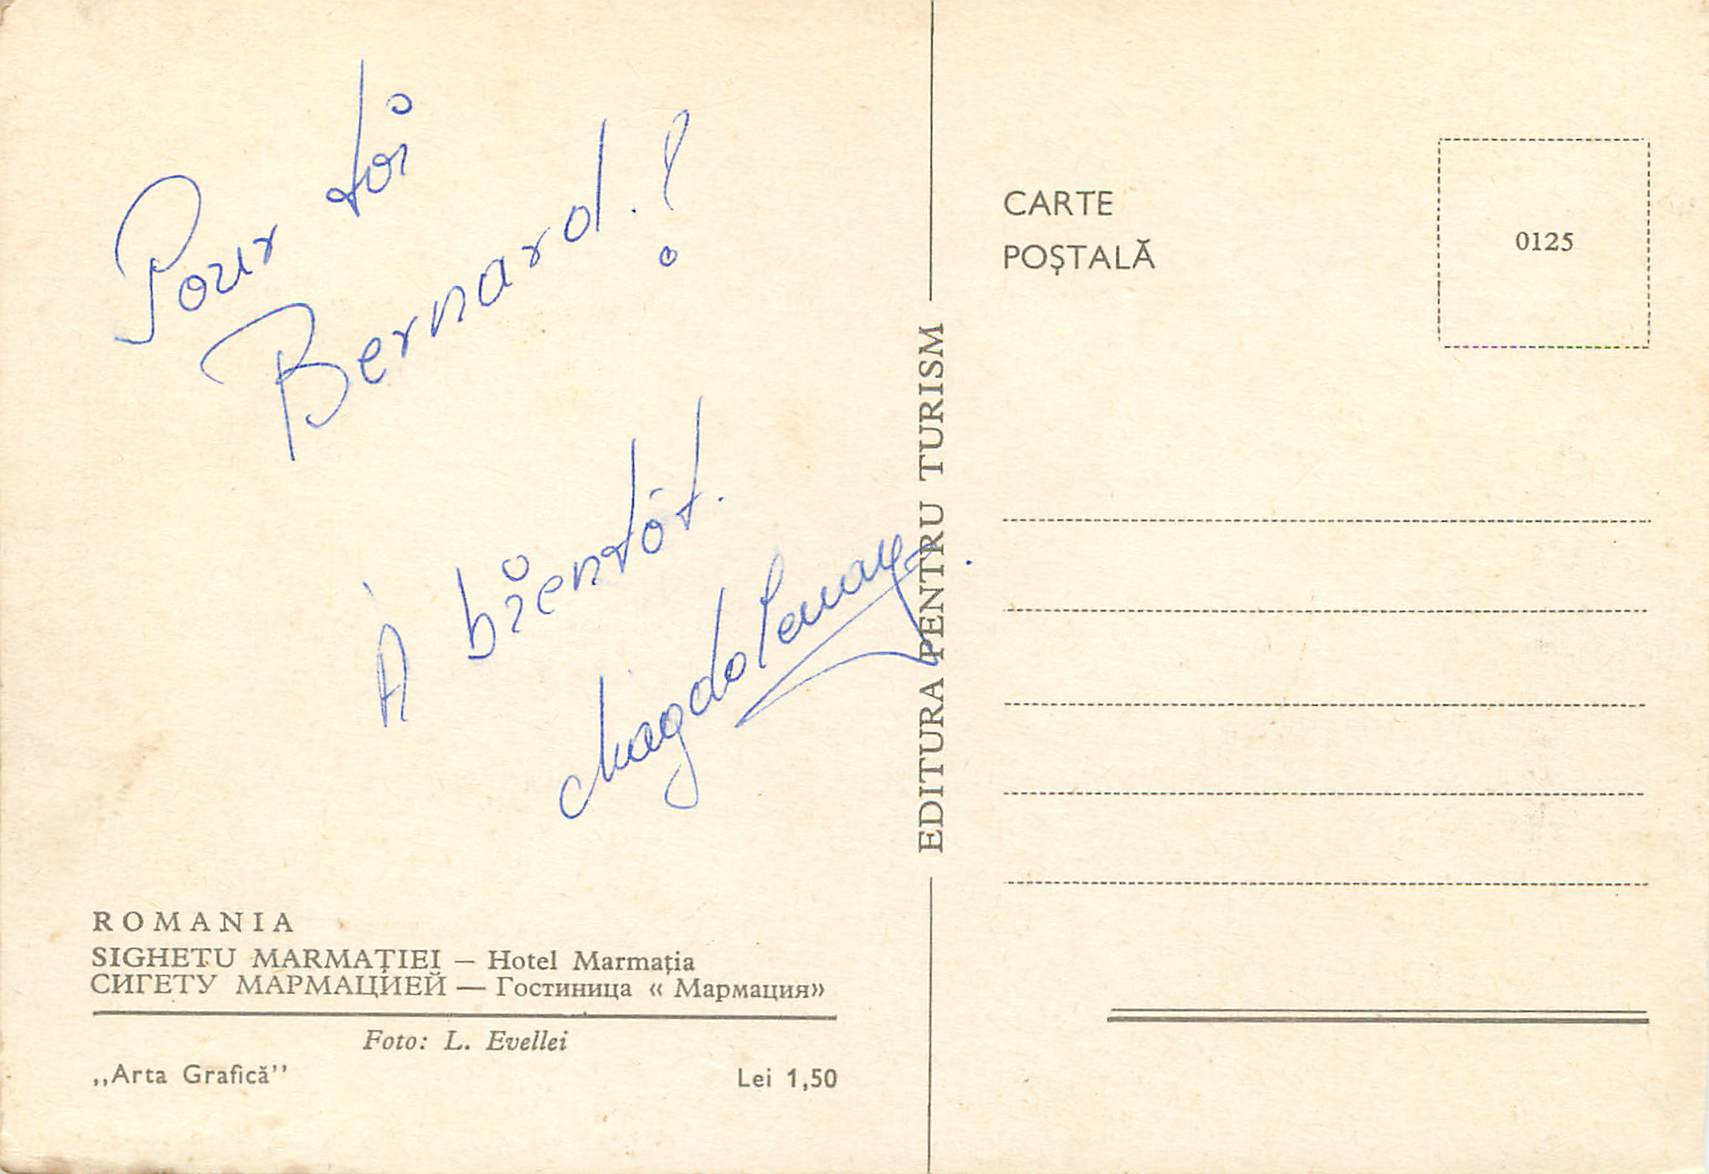 Pour toi
Bernard!
À bientôt.
CARTE
POȘTALĂ
0125
EDITURA PENTRU TURISM
ROMANIA
SIGHETU MARMAȚIEI — Hotel Marmația
СИГЕТУ МАРМАЦИЕЙ — Гостиница « Мармация»
Foto: L. Evellei
,,Arta Grafică''
Lei 1,50